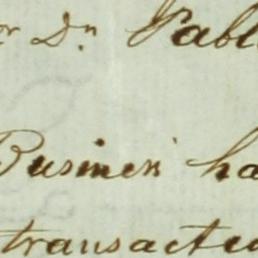 or Dn Pabl
Business ha
transacted